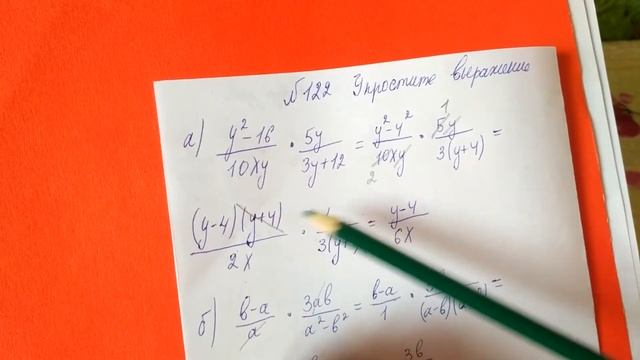 №122 Упростите выражение
а) (y² - 16)/(10xy) · (5y)/(3y+12) = (y² - 4²)/(10xy) · (5y)/(3(y+4)) =
2 1
((y-4)(y+4))/(2x) · 1/(3(y+ = (y-4)/(6x)
б) (в-а)/а · (3ав)/(а²-в²) = (в-а)/1 · /((а-в)(а =
3в